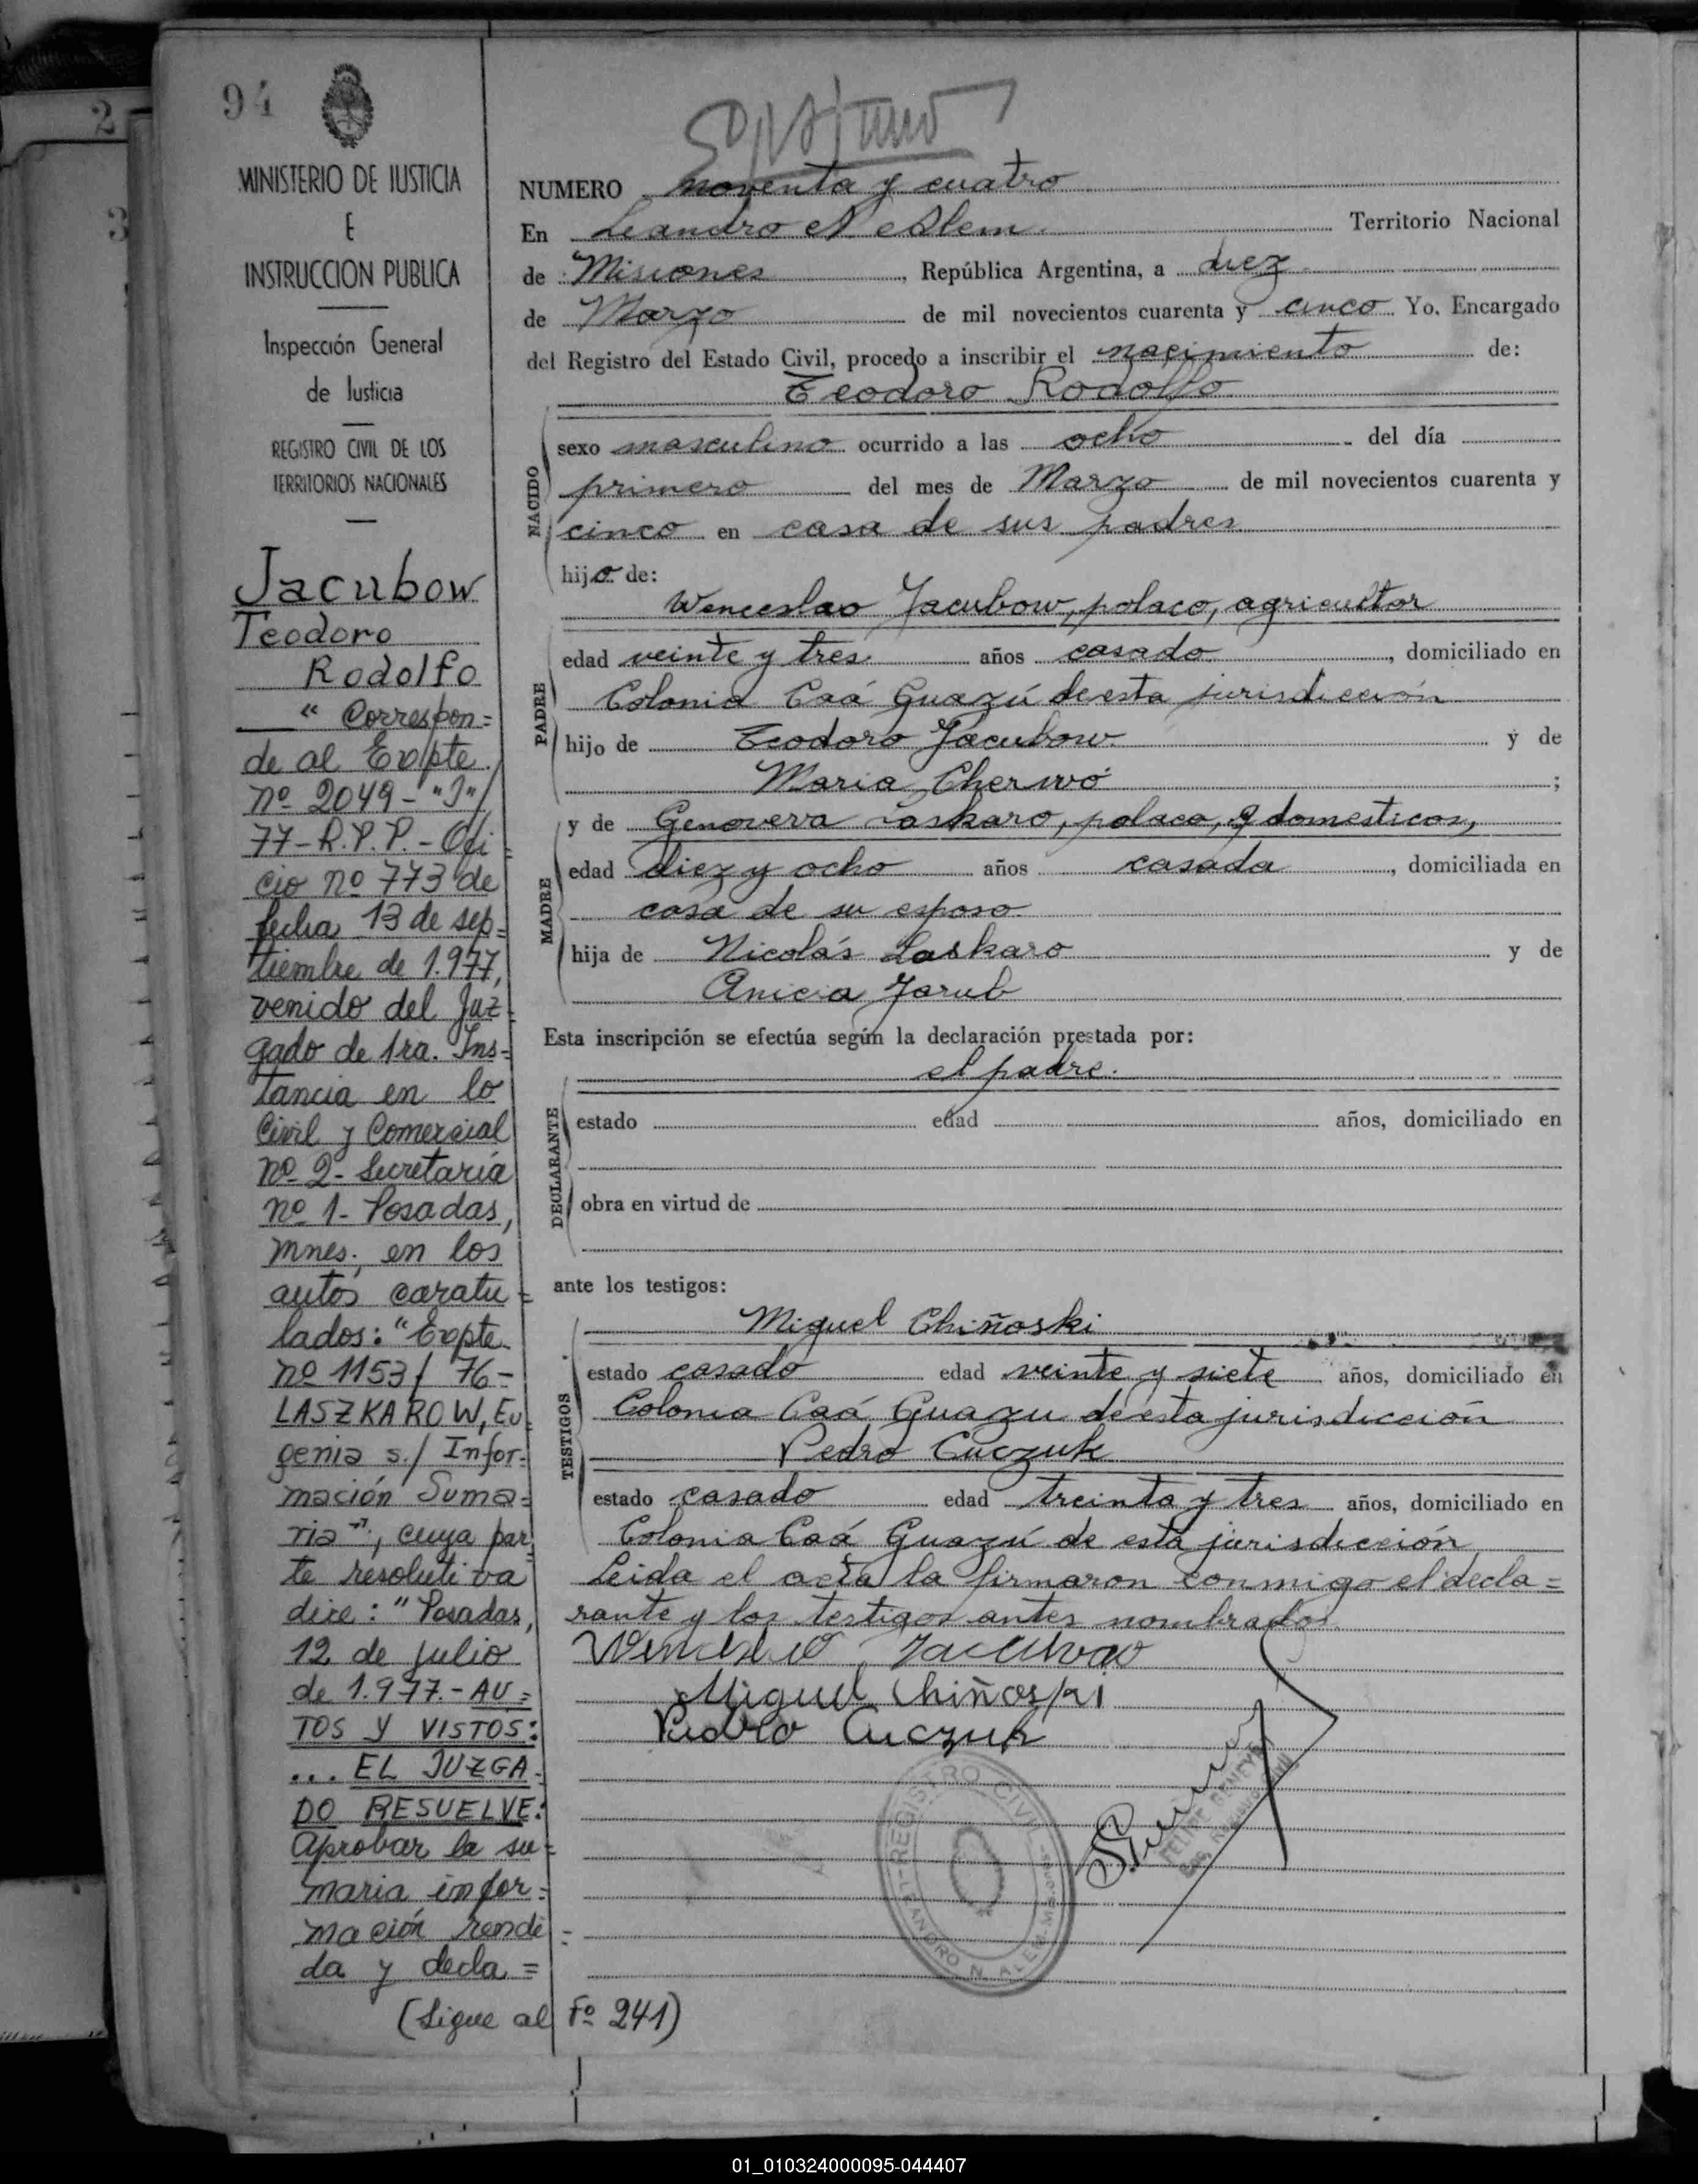 94
2
3
MINISTERIO DE JUSTICIA
E
INSTRUCCION PUBLICA
Inspección General
de Justicia
REGISTRO CIVIL DE LOS
TERRITORIOS NACIONALES
Jacubow
Teodoro
Rodolfo
“ Correspon=
de al Expte.
nº 2049-"J"/
77-R.P.P.-Ofi=
cio nº 773 de
fecha 13 de sep=
tiembre de 1.977,
venido del Juz=
gado de 1ra. Ins=
tancia en lo
Civil y Comercial
nº 2- Secretaría
nº 1- Posadas,
mnes. en los
autos caratu=
lados: “Expte.
nº 1153/ 76-
LASZKAROW, Eu=
genia s./ Infor=
mación Suma=
ria”, cuya par=
te resolutiva
dice: “Posadas,
12 de julio
de 1.977.- AU=
TOS Y VISTOS:
... EL JUZGA=
DO RESUELVE:
Aprobar la su=
maria infor=
mación rendi=
da y decla=
(Sigue al Fº 241)
NUMERO noventa y cuatro
En Leandro N Alem Territorio Nacional
de Misiones, República Argentina, a diez
de Marzo de mil novecientos cuarenta y cinco Yo, Encargado
del Registro del Estado Civil, procedo a inscribir el nacimiento de:
Teodoro Rodolfo
NACIDO
sexo masculino ocurrido a las ocho del día
primero del mes de Marzo de mil novecientos cuarenta y
cinco en casa de sus padres
hijo de:
PADRE
Wenceslao Jacubow, polaco, agricultor
edad veinte y tres años casado, domiciliado en
Colonia Caá Guazú de esta jurisdicción
hijo de Teodoro Jacubow y de
Maria Cherwó;
MADRE
y de Genoveva Laskaro, polaca, q domesticos,
edad diez y ocho años casada, domiciliada en
casa de su esposo
hija de Nicolás Laskaro y de
Anicia Jarub
Esta inscripción se efectúa según la declaración prestada por:
el padre.
DECLARANTE
estado edad años, domiciliado en
obra en virtud de
ante los testigos:
TESTIGOS
Miguel Chiñoski
estado casado edad veinte y siete años, domiciliado en
Colonia Caá Guazu de esta jurisdicción
Pedro Cuczuk
estado casado edad treinta y tres años, domiciliado en
Colonia Caá Guazú de esta jurisdicción
Leida el acta la firmaron conmigo el decla=
rante y los testigos antes nombrados.
Wenceslao Jacubow
Miguel Chiñoski
Pedro Cuczuk
REGISTRO CIVIL
LEANDRO N. ALEM
01_010324000095-044407